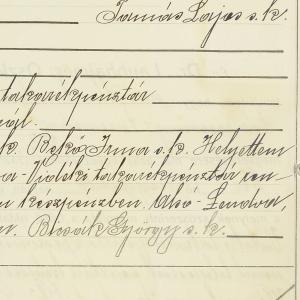 Tamás Lajos s. k.
takarékpénztár
k. Bekő Irma s. k. Helyettem
a-Vidéki takarékpénztár
készpénzben, Alsó-Lendva,
György s. k.